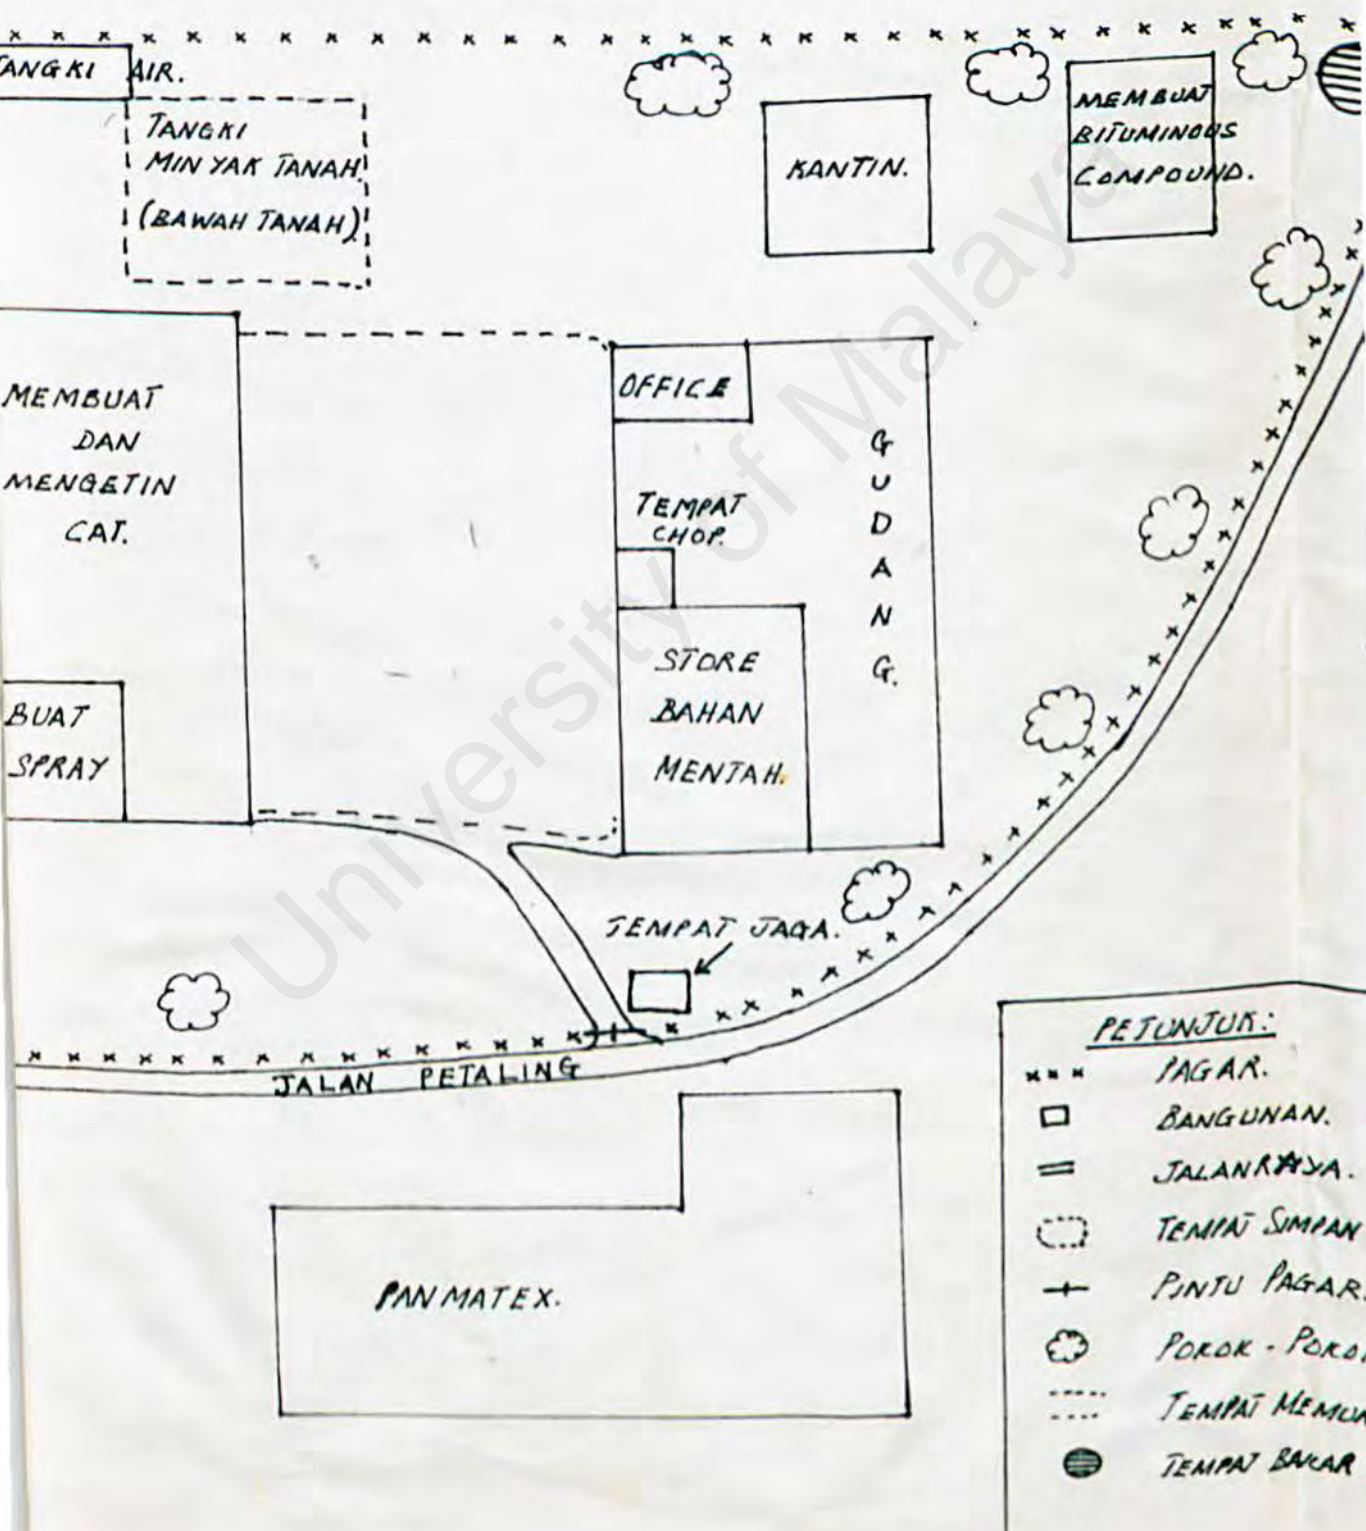 TANGKI AIR.
TANGKI
MINYAK TANAH.
(BAWAH TANAH)
KANTIN.
MEMBUAT
BITUMINOUS
COMPOUND.
MEMBUAT
DAN
MENGETIN
CAT.
BUAT
SPRAY
OFFICE
TEMPAT
CHOP.
GUDANG.
STORE
BAHAN
MENTAH.
TEMPAT JAGA.
JALAN PETALING
PANMATEX.
PETUNJUK:
PAGAR.
BANGUNAN.
JALANRAYA.
TEMPAT SIMPAN
PINTU PAGAR.
POKOK - POKO
TEMPAT MEMU
TEMPAT BAKAR
University of Malaya